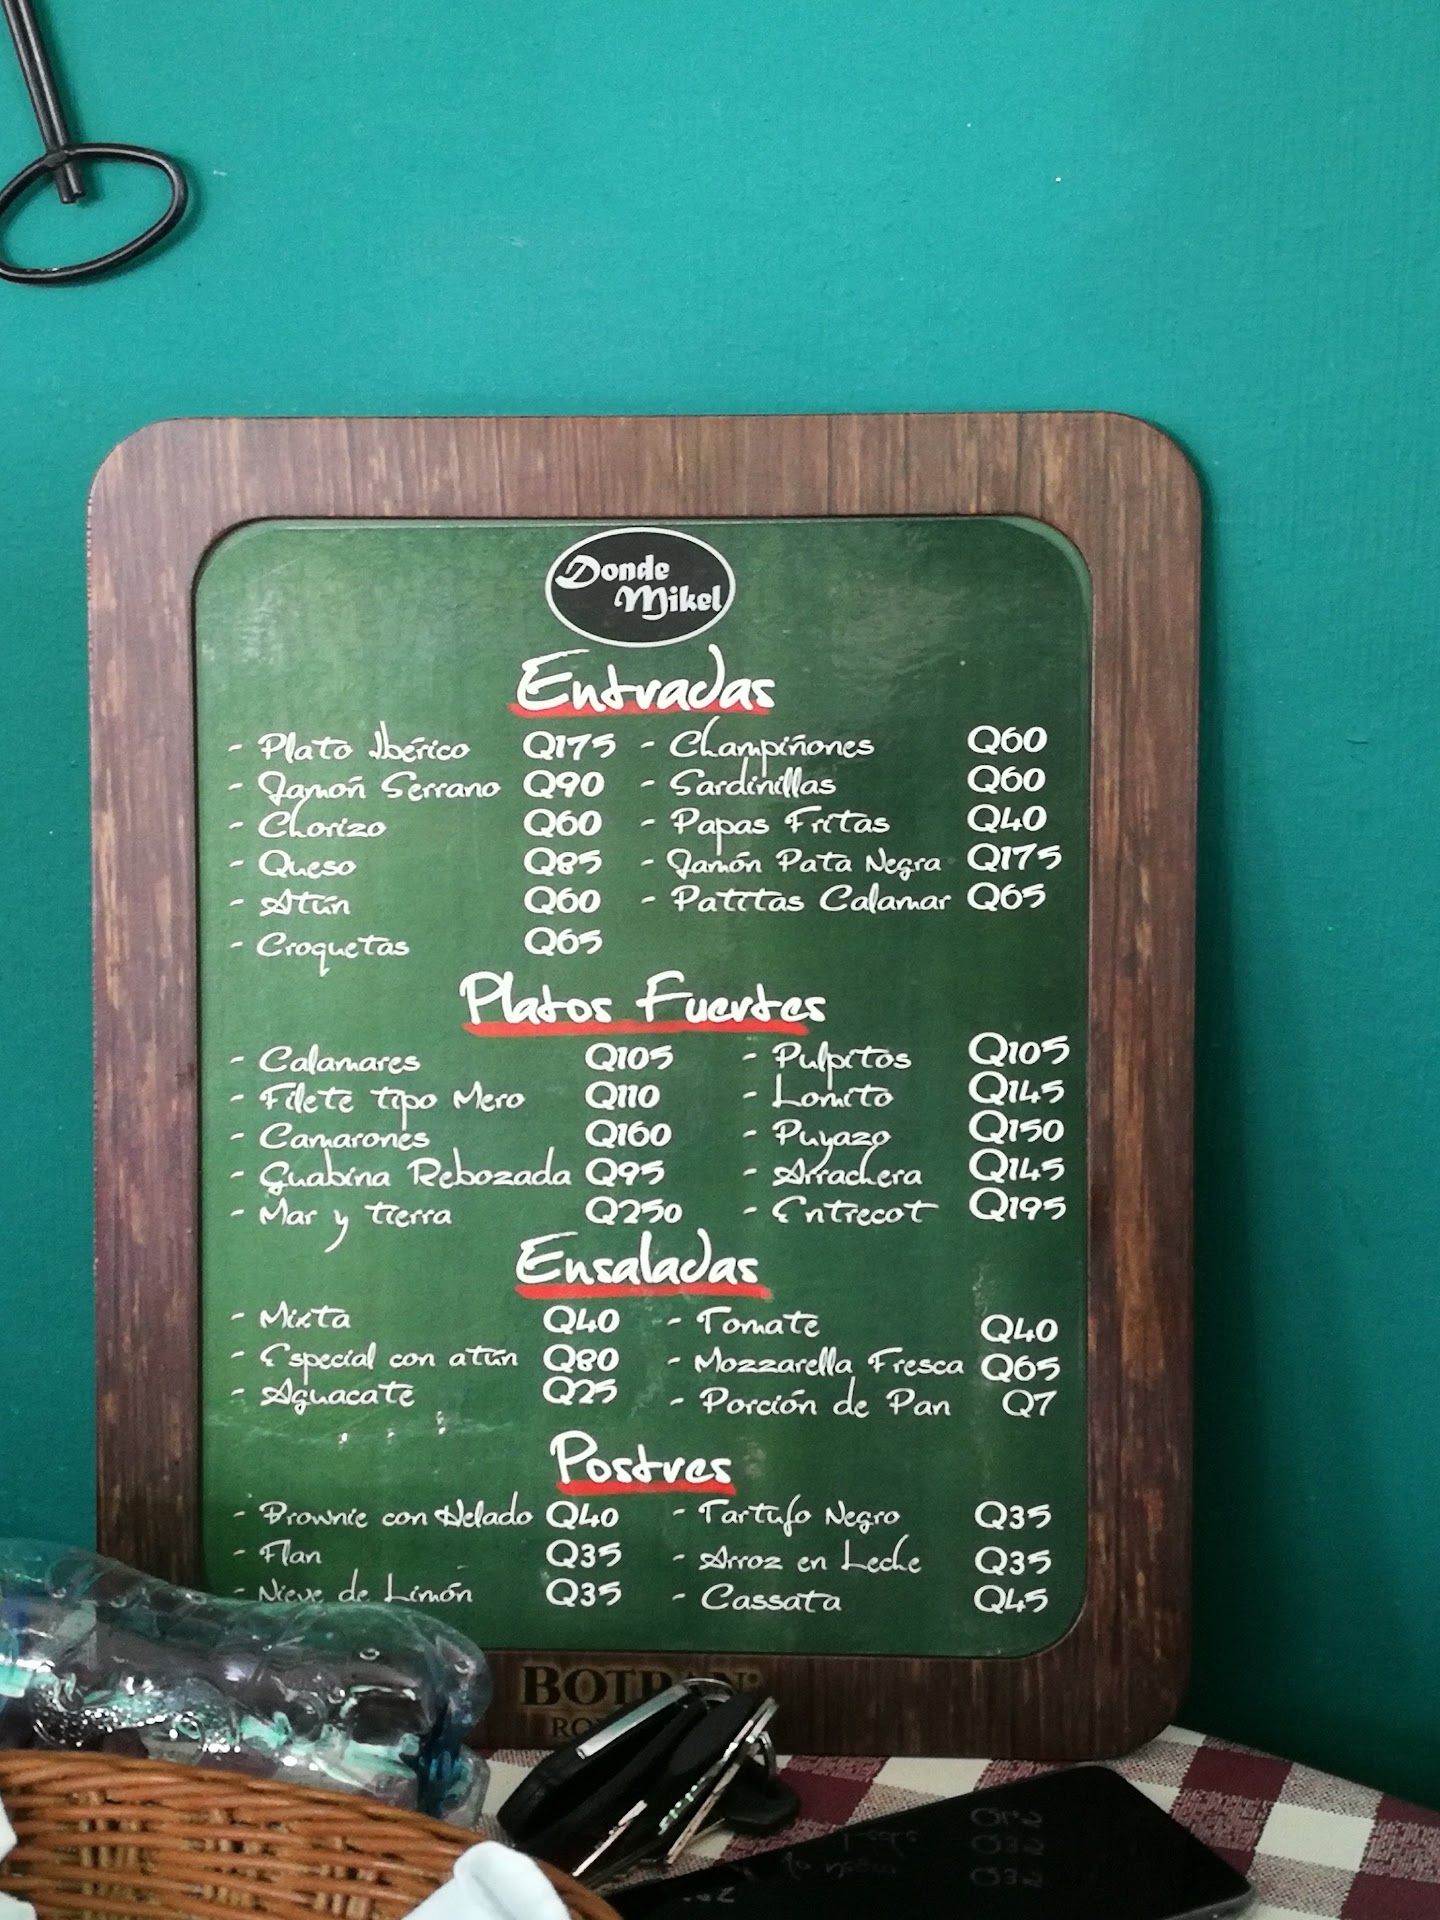 Donde
Mikel
Entradas
- Plato Ibérico Q175 - Champiñones Q60
- Jamón Serrano Q90 - Sardinillas Q60
- Chorizo Q60 - Papas Fritas Q40
- Queso Q85 - Jamón Pata Negra Q175
- Atún Q60 - Patitas Calamar Q65
- Croquetas Q65
Platos Fuertes
- Calamares Q105 - Pulpitos Q105
- Filete tipo Mero Q110 - Lomito Q145
- Camarones Q160 - Puyazo Q150
- Guabina Rebozada Q95 - Arrachera Q145
- Mar y tierra Q250 - Entrecot Q195
Ensaladas
- Mixta Q40 - Tomate Q40
- Especial con atún Q80 - Mozzarella Fresca Q65
- Aguacate Q25 - Porción de Pan Q7
Postres
- Brownie con Helado Q40 - Tartufo Negro Q35
- Flan Q35 - Arroz en Leche Q35
- Nieve de Limón Q35 - Cassata Q45
BOTRAN